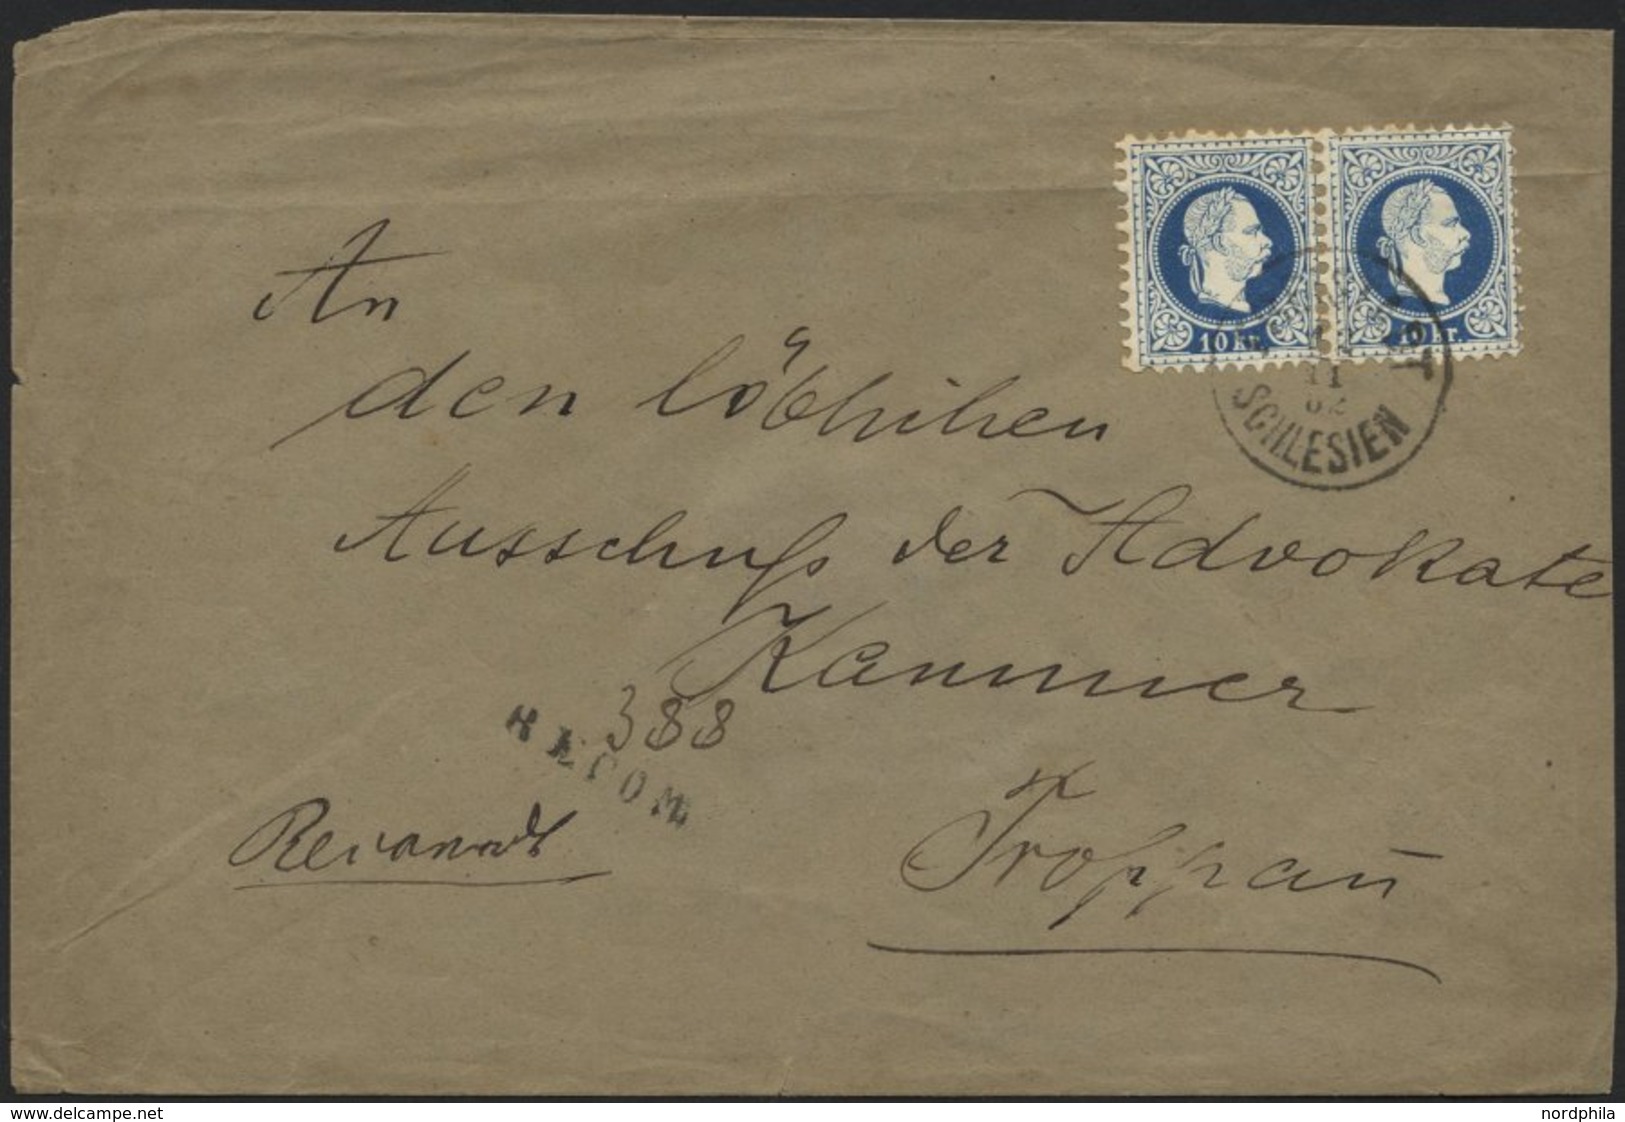 10 kr. 10 kr.
11
82
SCHLESIEN
An
den löblichen
Ausschuß der Advokate
Kammer
388
RECOM
Recomandt
Troppau
www.delcampe.net
nordphila